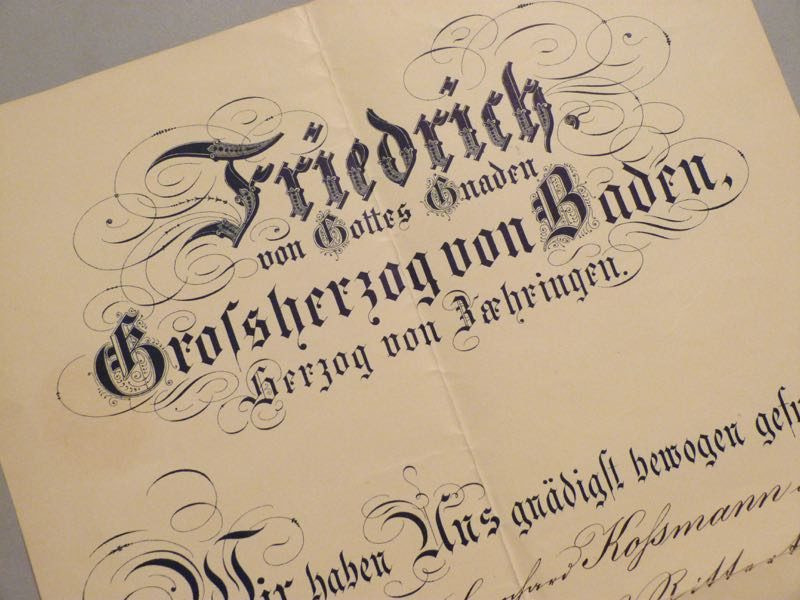 Friedrich,
von Gottes Gnaden
Grossherzog von Baden,
Herzog von Zæhringen.
Wir haben Uns gnädigſt bewogen
Koſsmann